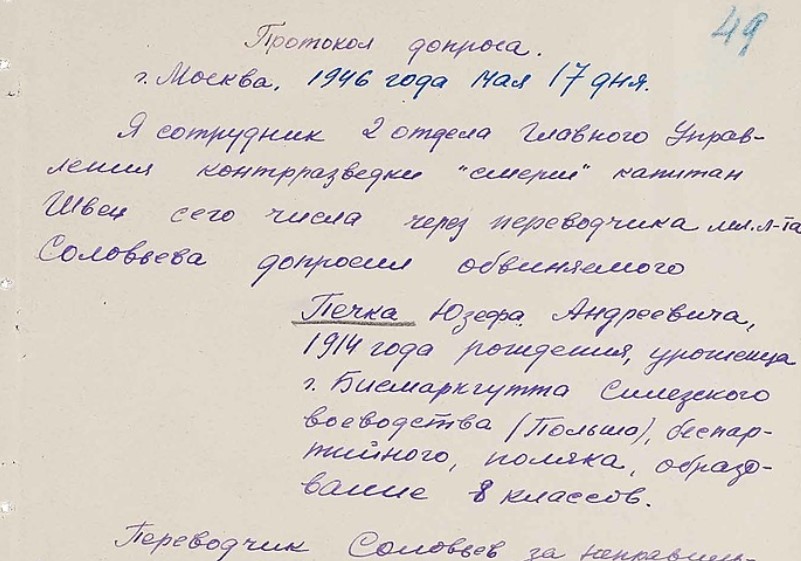 49
Протокол допроса.
г. Москва, 1946 года мая 17 дня.
Я сотрудник 2 отдела Главного Управ-
ления контрразведки "смерш" капитан
Швец сего числа через переводчика мл. л-та
Соловьева допросил обвиняемого
Печка Юзефа Андреевича,
1914 года рождения, уроженца
г. Бисмаркгутта Силезского
воеводства (Польша), беспар-
тийного, поляка, образо-
вание 8 классов.
Переводчик Соловьев за неправиль-